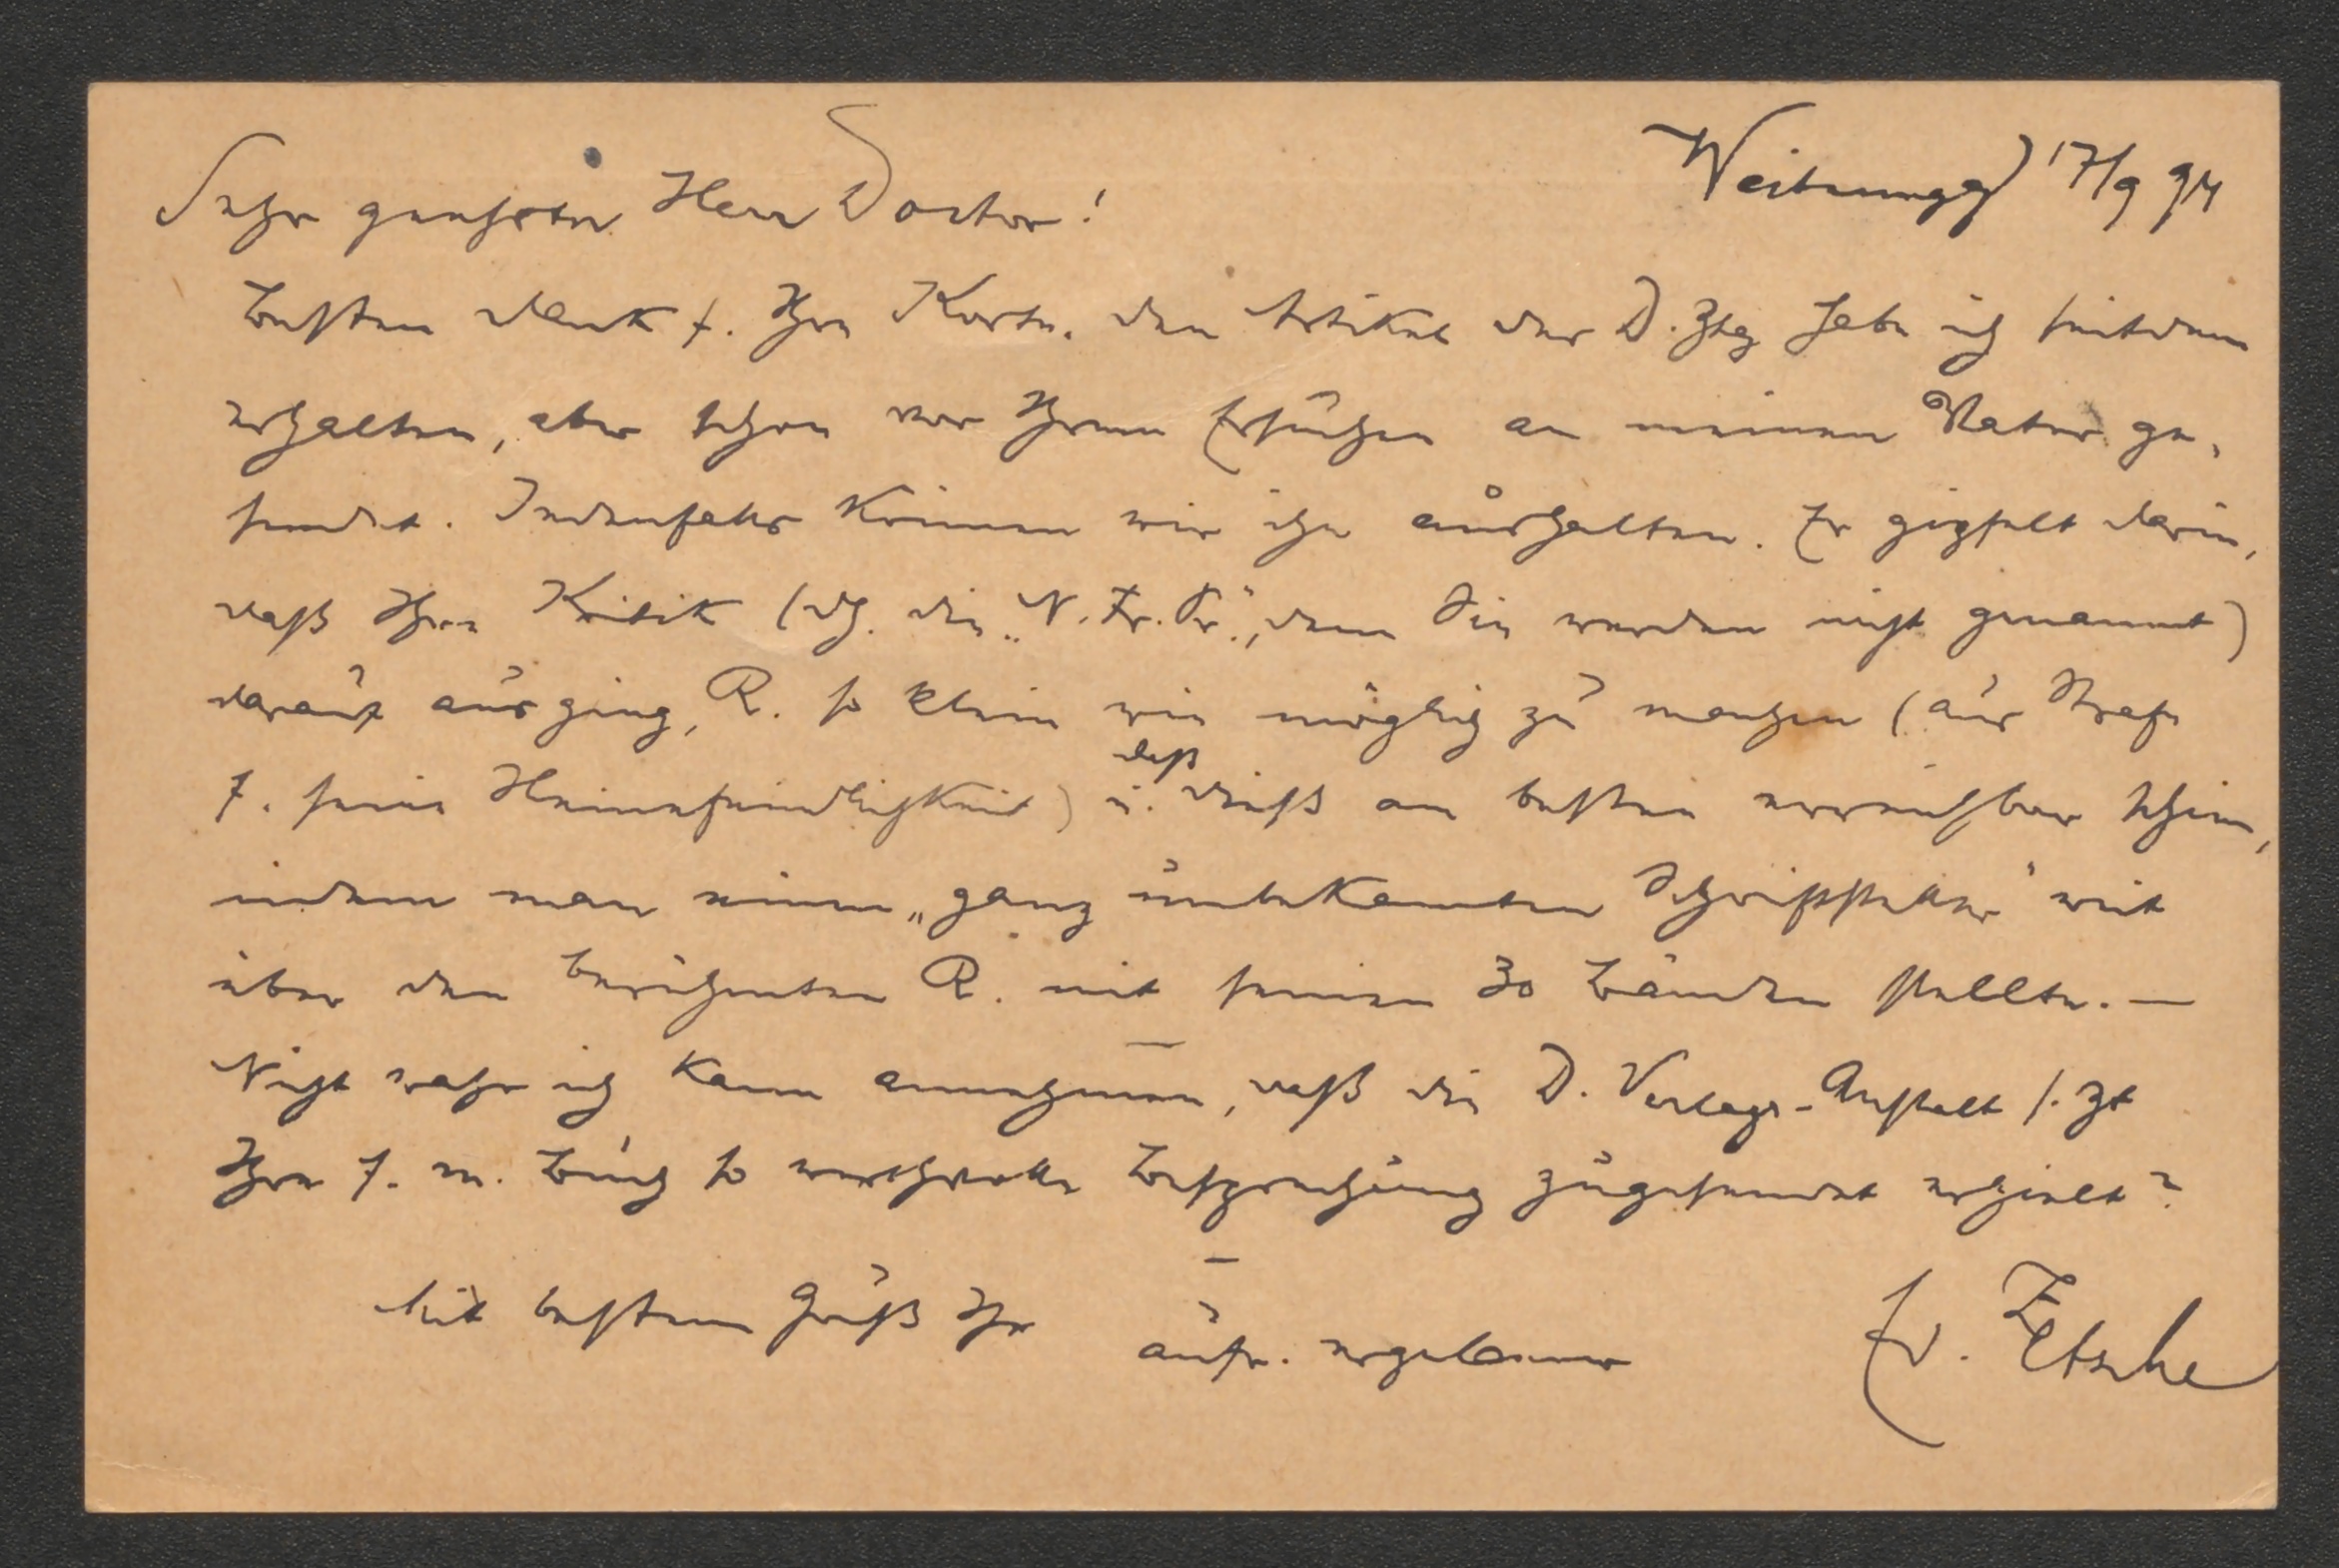 Sehr geehrter Herr Doctor!
17/9 94
Besten Dank f. Ihre Karte. Den Artikel der D. Ztg habe ich seitdem
erhalten, aber schon vor Ihrem Ersuchen an meinen Vater ge-
sendet. Jedenfalls können wir ihn aushalten. Er gipfelt darin,
daß Ihre Kritik (dh. die „N. Fr. Pr.“, denn Sie werden nicht genannt)
darauf ausging, R. so klein wie möglich zu machen (aus Strafe
f. seine Heinefeindlichkeit) u. daß dieß am besten erreichbar schien,
indem man einen „ganz unbekannten Schriftsteller“ weit
über den berühmten R. mit seinen 30 Bänden stellte. —
Nicht wahr ich kann annehmen, daß die D. Verlags-Anstalt s. Zt
Ihre f. m. Buch so werthvolle Besprechung zugesendet erhielt?
—
Mit bestem Gruß Ihr
aufr. ergebener